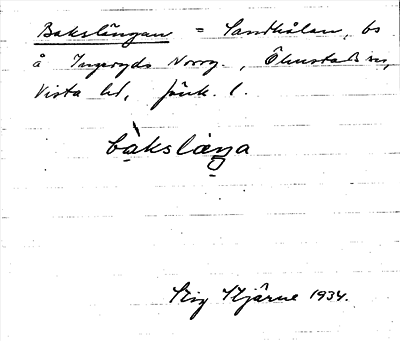 Bakslängan = Sandhålan, bs
å Ingeryds Norrg., Ölmstads sn,
Vista hd, Jönk. l.
bàkslæŋa
Stig Hjärne 1934.